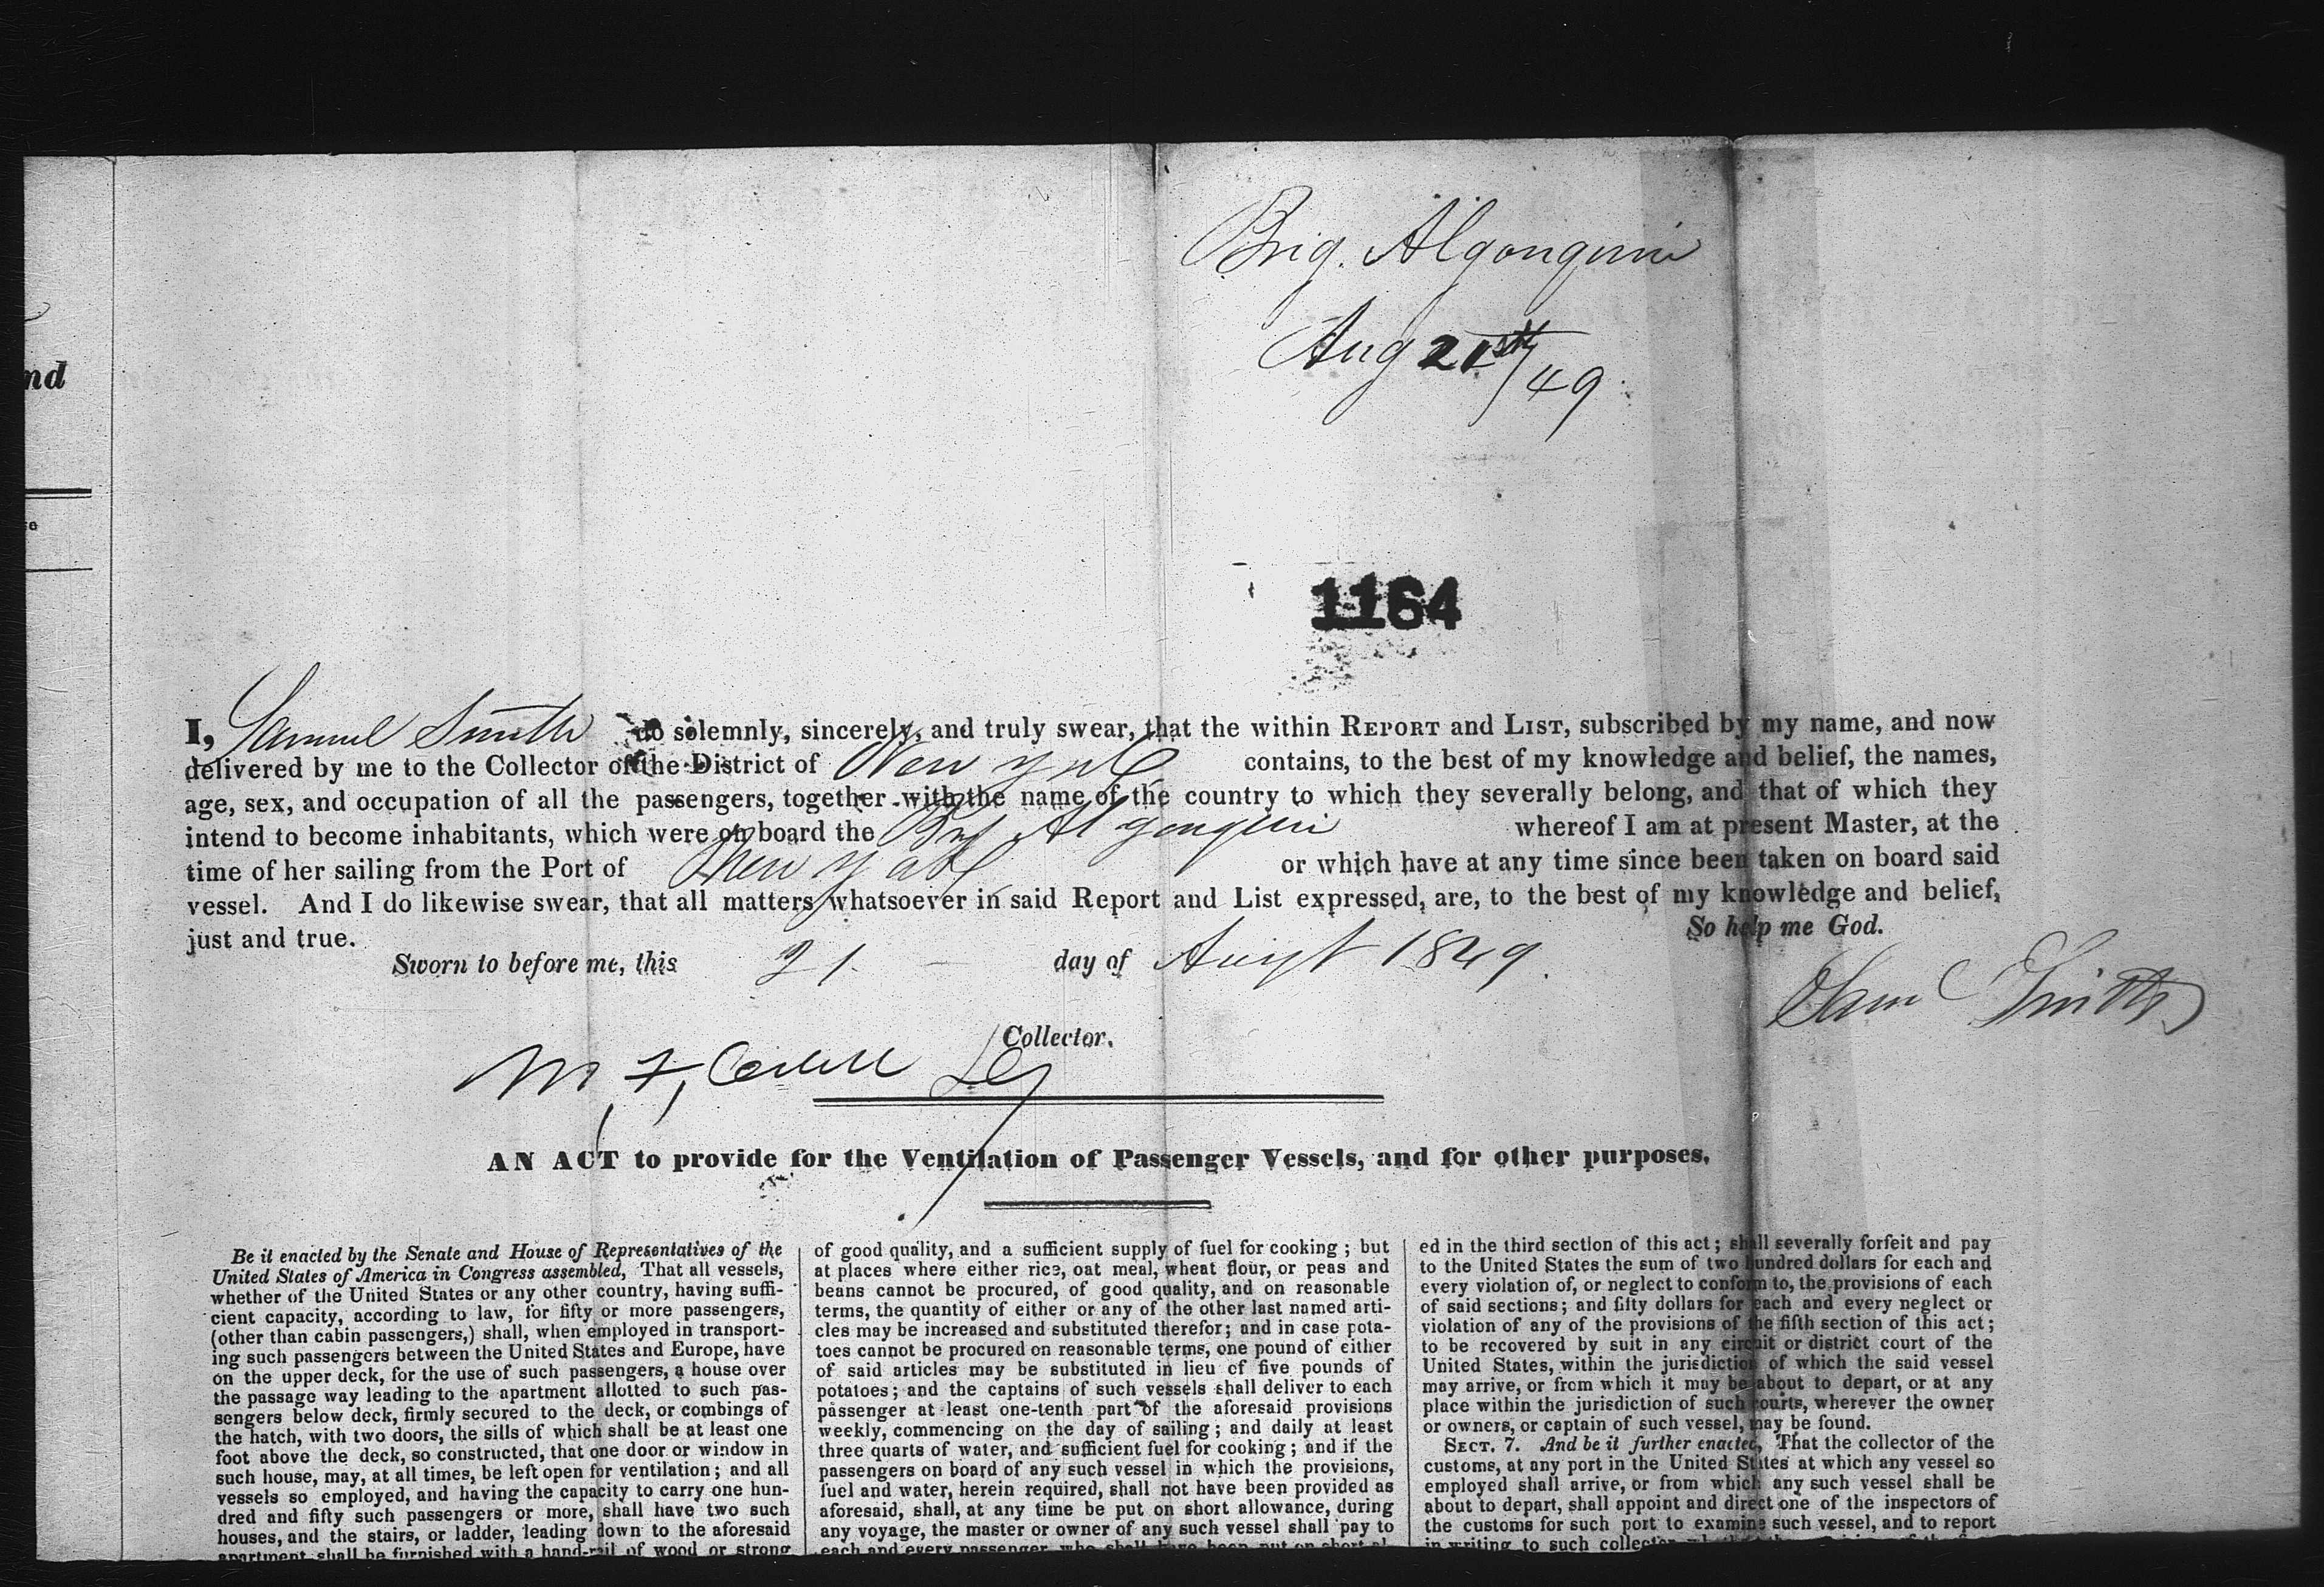 Brig. Algonquin
Aug 21st/49
nd
1164
I, Samuel Smith do solemnly, sincerely, and truly swear, that the within REPORT and LIST, subscribed by my name, and now
delivered by me to the Collector of the District of New York contains, to the best of my knowledge and belief, the names,
age, sex, and occupation of all the passengers, together with the name of the country to which they severally belong, and that of which they
intend to become inhabitants, which were on board the Brig Algonquin whereof I am at present Master, at the
time of her sailing from the Port of New York or which have at any time since been taken on board said
vessel. And I do likewise swear, that all matters whatsoever in said Report and List expressed, are, to the best of my knowledge and belief,
just and true.
So help me God.
Sworn to before me, this 21 day of Augst 1849.
Sam Smith
Collector.
M, F,
AN ACT to provide for the Ventilation of Passenger Vessels, and for other purposes.
Be it enacted by the Senate and House of Representatives of the
United States of America in Congress assembled, That all vessels,
whether of the United States or any other country, having suffi-
cient capacity, according to law, for fifty or more passengers,
(other than cabin passengers,) shall, when employed in transport-
ing such passengers between the United States and Europe, have
on the upper deck, for the use of such passengers, a house over
the passage way leading to the apartment allotted to such pas-
sengers below deck, firmly secured to the deck, or combings of
the hatch, with two doors, the sills of which shall be at least one
foot above the deck, so constructed, that one door or window in
such house, may, at all times, be left open for ventilation; and all
vessels so employed, and having the capacity to carry one hun-
dred and fifty such passengers or more, shall have two such
houses, and the stairs, or ladder, leading down to the aforesaid
apartment shall be furnished with a hand-rail of wood or strong
of good quality, and a sufficient supply of fuel for cooking; but
at places where either rice, oat meal, wheat flour, or peas and
beans cannot be procured, of good quality, and on reasonable
terms, the quantity of either or any of the other last named arti-
cles may be increased and substituted therefor; and in case pota-
toes cannot be procured on reasonable terms, one pound of either
of said articles may be substituted in lieu of five pounds of
potatoes; and the captains of such vessels shall deliver to each
passenger at least one-tenth part of the aforesaid provisions
weekly, commencing on the day of sailing; and daily at least
three quarts of water, and sufficient fuel for cooking; and if the
passengers on board of any such vessel in which the provisions,
fuel and water, herein required, shall not have been provided as
aforesaid, shall, at any time be put on short allowance, during
any voyage, the master or owner of any such vessel shall pay to
each and every passenger who shall have been put on short al-
ed in the third section of this act; shall severally forfeit and pay
to the United States the sum of two hundred dollars for each and
every violation of, or neglect to conform to, the provisions of each
of said sections; and fifty dollars for each and every neglect or
violation of any of the provisions of the fifth section of this act;
to be recovered by suit in any circuit or district court of the
United States, within the jurisdiction of which the said vessel
may arrive, or from which it may be about to depart, or at any
place within the jurisdiction of such courts, wherever the owner
or owners, or captain of such vessel, may be found.
SECT. 7. And be it further enacted, That the collector of the
customs, at any port in the United States at which any vessel so
employed shall arrive, or from which any such vessel shall be
about to depart, shall appoint and direct one of the inspectors of
the customs for such port to examine such vessel, and to report
in writing to such collector